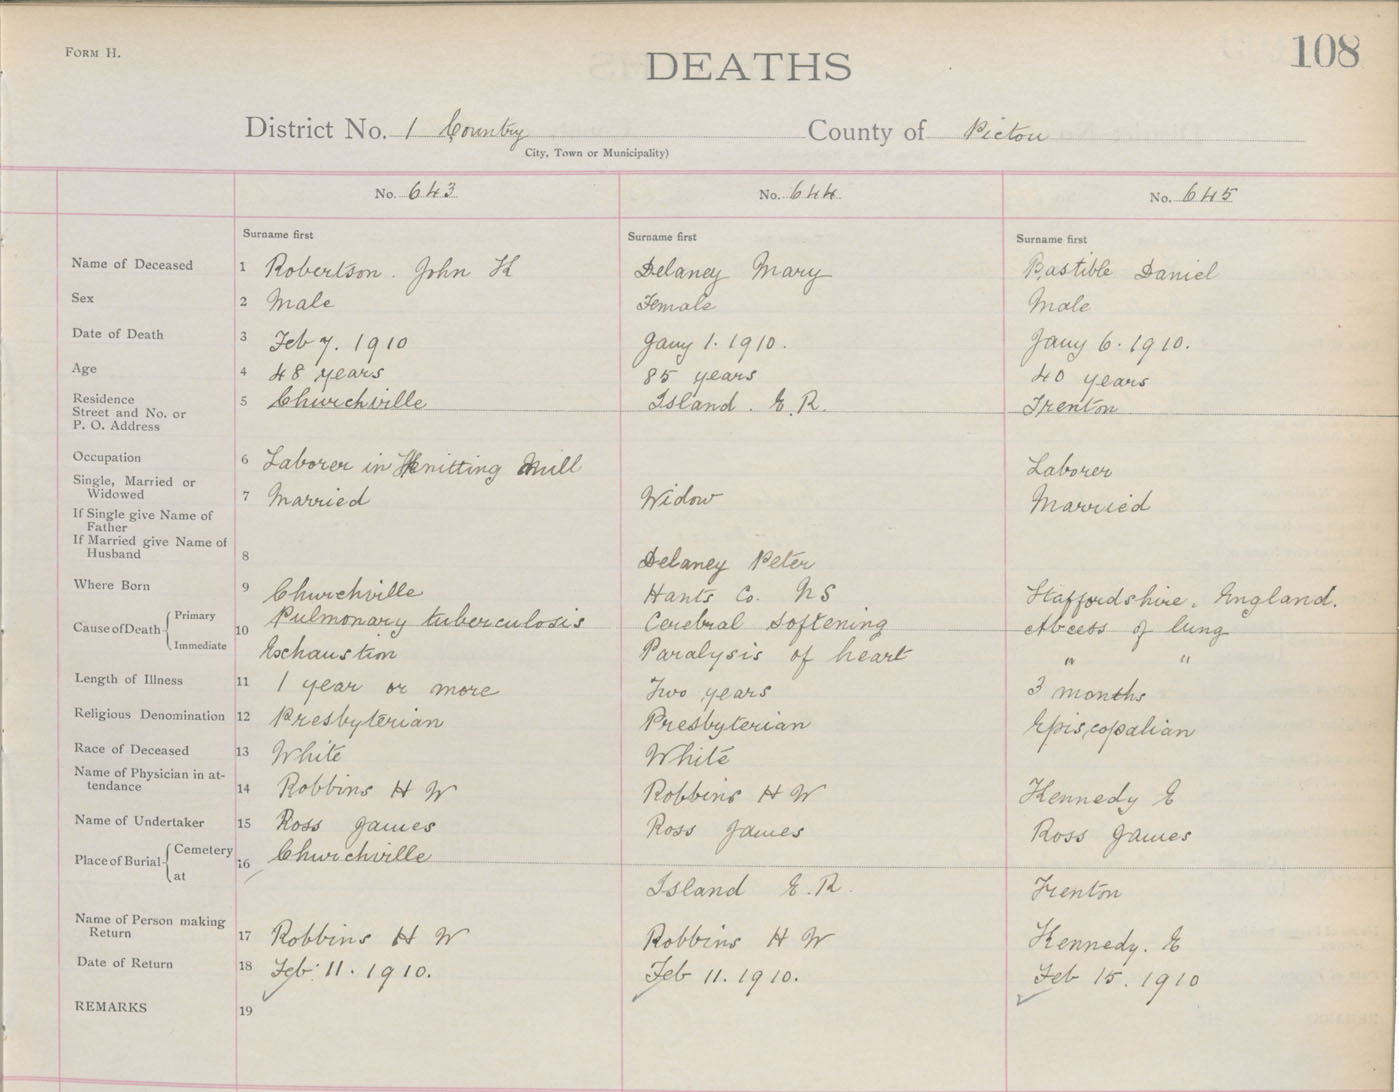 FORM H.
DEATHS
108
District No. 1 Country County of Pictou
City, Town or Municipality)
No. 643 No. 644 No. 645
Surname first Surname first Surname first
Name of Deceased 1 Robertson. John K Delaney Mary Bastible Daniel
Sex 2 Male Female Male
Date of Death 3 Feb 7. 1910 Jany 1. 1910. Jany 6. 1910.
Age 4 48 years 85 years 40 years
Residence
Street and No. or
P. O. Address
5 Churchville Island. E. R. Trenton
Occupation 6 Laborer in Knitting Mill Laborer
Single, Married or
Widowed
7 Married Widow Married
If Single give Name of
Father
If Married give Name of
Husband
8 Delaney Peter
Where Born 9 Churchville Hants Co. NS Staffordshire, England.
Cause of Death Primary Pulmonary tuberculosis Cerebral Softening Abcess of lung
10
Immediate Exhaustion Paralysis of heart " "
Length of Illness 11 1 year or more Two years 3 months
Religious Denomination 12 Presbyterian Presbyterian Episcopalian
Race of Deceased 13 White White
Name of Physician in at-
tendance
14 Robbins H W Robbins H W Kennedy E
Name of Undertaker 15 Ross James Ross James Ross James
Place of Burial Cemetery 16 Churchville
at Island E. R. Trenton
Name of Person making
Return
17 Robbins H W Robbins H W Kennedy. E
Date of Return 18 Feb. 11. 1910. Feb 11. 1910. Feb 15. 1910
REMARKS 19